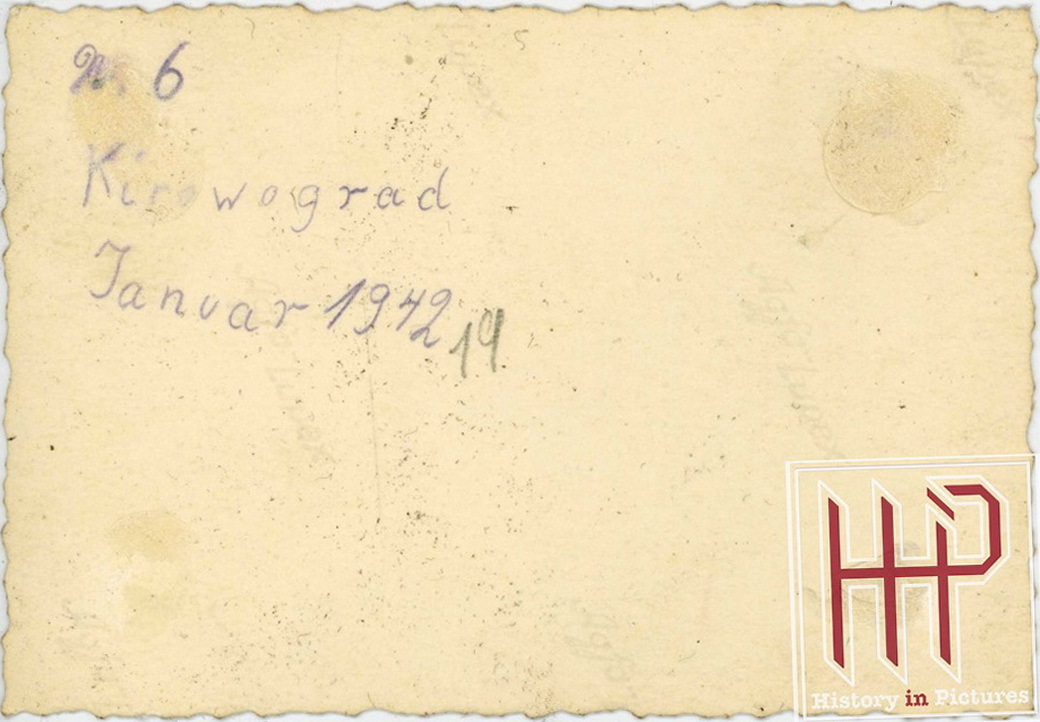 Nr 6
Kirowograd
Januar 1942
19
HiP
History in Pictures